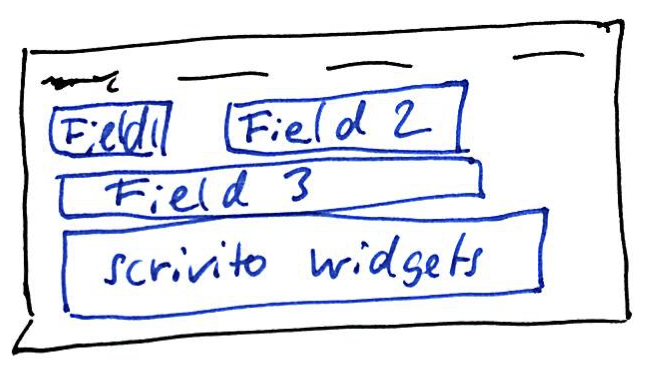 Field 1 Field 2
Field 3
scrivito widgets